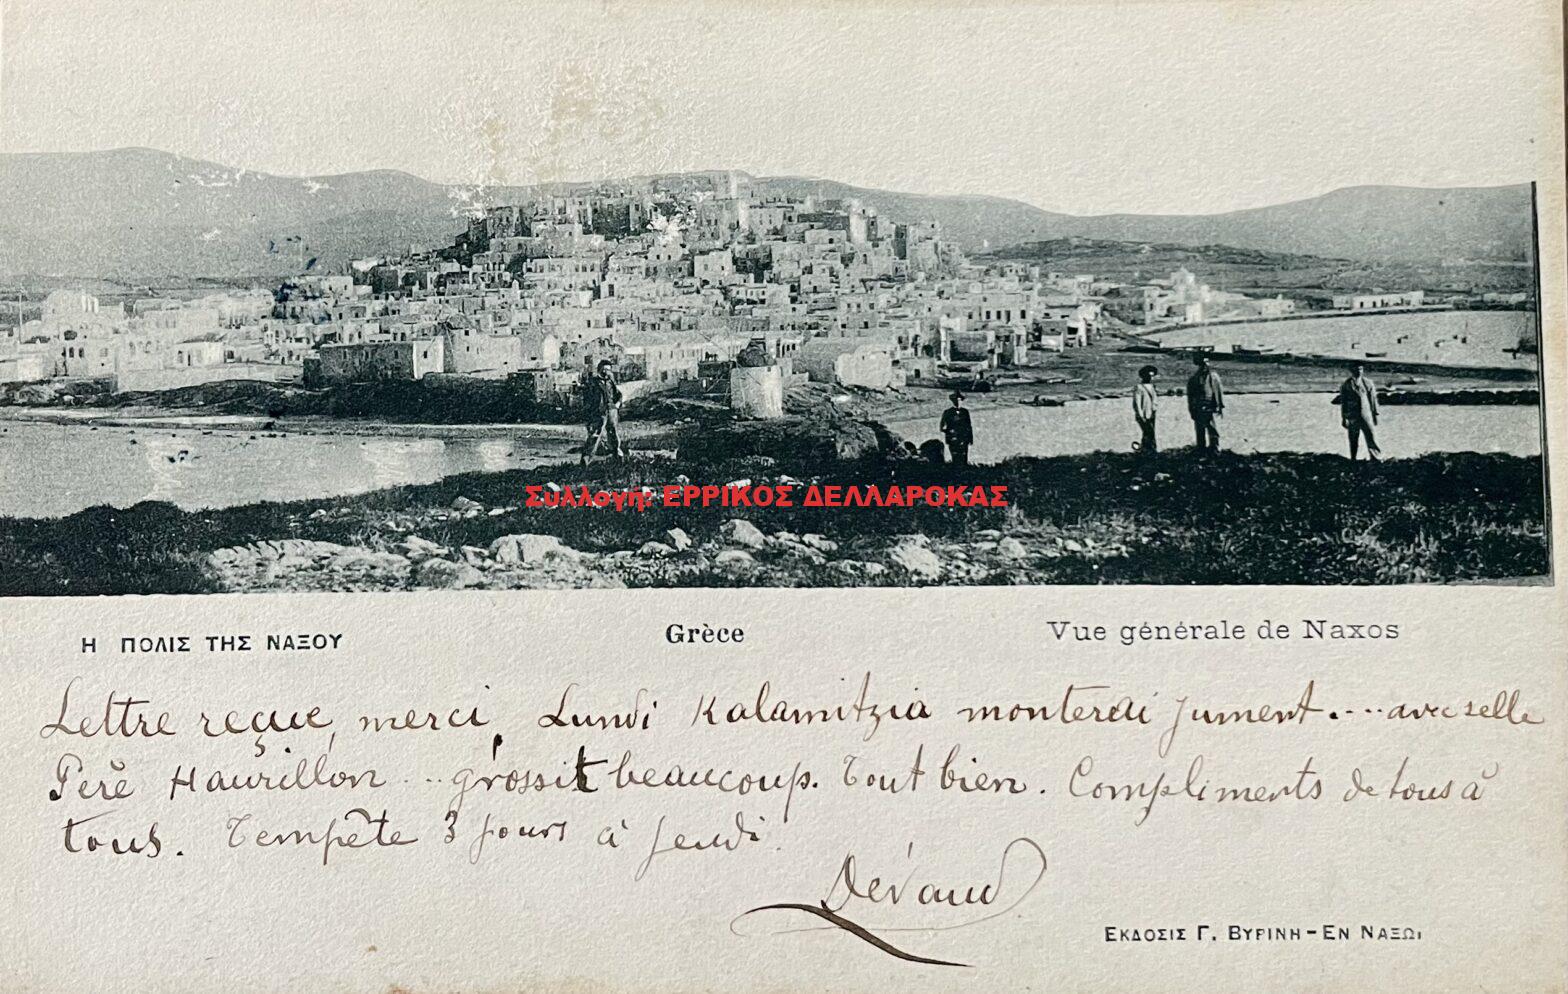 Συλλογή: ΕΡΡΙΚΟΣ ΔΕΛΛΑΡΟΚΑΣ
Η ΠΟΛΙΣ ΤΗΣ ΝΑΞΟΥ
Grèce
Vue générale de Naxos
Lettre reçue, merci, Lundi Kalamitzia monterai jument.... avec selle
Père Haurillon ... grossit beaucoup. Tout bien. Compliments de tous à
tous. Tempête 3 jours à jeudi.
Dévaud
ΕΚΔΟΣΙΣ Γ. ΒΥΡΙΝΗ-ΕΝ ΝΑΞΩΙ